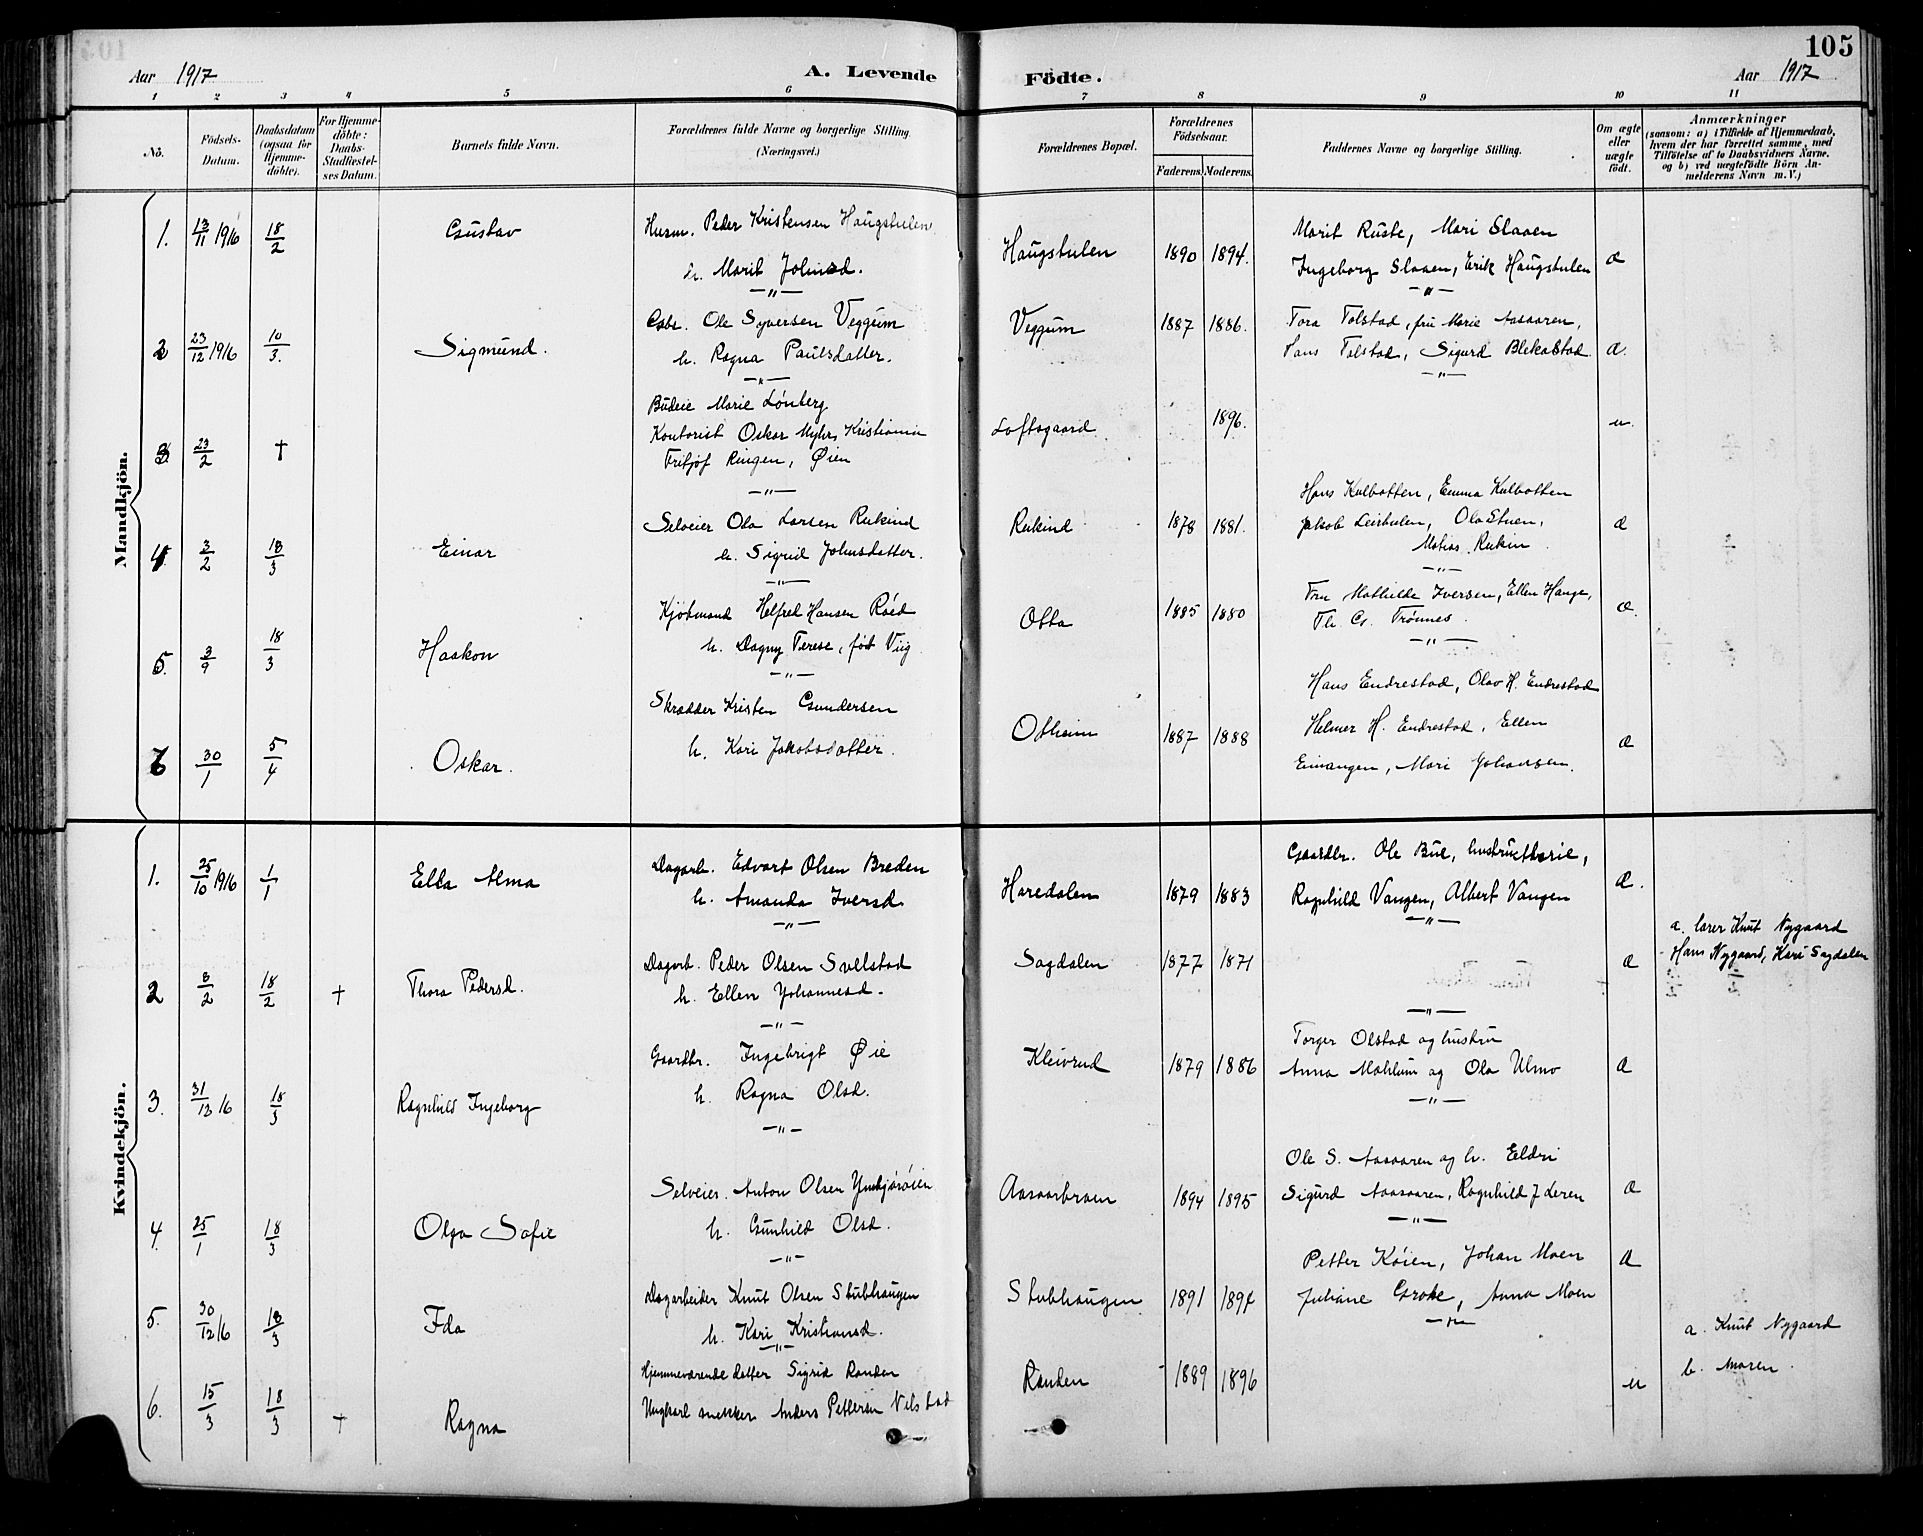 105
Aar 1917
A. Levende Födte.
Aar 1917
1 2 3 4 5 6 7 8 9 10 11
No.
Födsels-
Datum.
Daabsdatum
(ogsaa for
Hjemme-
döbte).
For Hjemme-
döbte:
Daabs-
Stadfæstel-
ses Datum.
Barnets fulde Navn.
Forældrenes fulde Navne og borgerlige Stilling
(Næringsvei.)
Forældrenes Bopæl.
Forældrenes
Födselsaar.
Faderens. Moderens.
Faddernes Navne og borgerlige Stilling.
Om ægte
eller
uægte
født.
Anmærkninger
(saasom: a) i Tilfælde af Hjemmedaab,
hvem der har forrettet samme, med
Tilföielse af to Daabsvidners Navne.
og b) ved uægtefödte Börn An-
melderens Navn m. V.)
Mandkjön.
1. 13/11 1916 18/2 Gustav
Husm. Peder Kristensen Haugstulen
h. Marit Johnsd.
—"—
Haugstulen 1890 1894.
Marit Ruste, Mari Slaaen
Ingeborg Slaaen, Erik Haugstulen æ
—"—
2 23/12 1916 10/3. Sigmund.
Gbr. Ole Syversen Veggum
h. Ragna Paulsdatter.
—"—
Veggum 1887 1886.
Tora Tolstad, fru Marie Aasaaren,
Hans Tolstad, Sigurd Blekastad æ.
—"—
3 23/2 †
Budeie Marie Lönberg
Kontorist Oskar Myhr, Kristiania
Fritjof Ringen, Øien
—"—
Loftsgaard 1896. u.
4 3/2 18/3 Einar
Selveier Ola Larsen Rukind
h. Sigrid Johnsdatter.
—"—
Rukind 1878 1881.
Hans Kulbotten, Emma Kulbotten
Jakob Leirhulen, Ola Stuen,
Matias Rukin æ
—"—
5. 3/9 18/3 Haakon
Kjöbmand Helfred Hansen Röed
h. Dagny Terese, föd Viig
—"—
Otta 1885 1880
Fru Mathilde Iversen, Ellen Hauge,
Th. G. Trönnes. æ.
—"—
6 30/1 5/4 Oskar.
Skrædder Kristen Gundersen
h. Kari Jakobsdatter.
Ottheim 1887 1888
Hans Endrestad, Olav H. Endrestad
Helmer H. Endrestad, Ellen
Einangen, Mari Johansen. æ
Kvindekjön.
1. 25/10 1916 1/1 Ella Alma
Dagarb. Edvart Olsen Breden
h. Amanda Iversd.
—"—
Haredalen 1879 1883
Gaardbr. Ole Bue, hustru Marie,
Ragnhild Vangen, Albert Vangen æ.
—"—
2 8/2 18/2 † Thora Pedersd.
Dagarb. Peder Olsen Svelstad
h. Ellen Johannesd.
—"—
Sagdalen 1877 1871 æ
a. lærer Knut Nygaard
Hans Nygaard, Kari Sagdalen
—"—
3. 31/12 16 18/3 Ragnhild Ingeborg
Gaardbr. Ingebrigt Øie
h. Ragna Olsd.
—"—
Kleivrud 1879 1886
Torger Olstad og hustru
Anna Mæhlum og Ola Ulmo æ
—"—
4. 25/1 18/3 Olga Sofie
Selveier. Anton Olsen
h. Gunhild Olsd.
—"—
Aasaarbraaen 1894 1895
Ole S. Aasaaren og h. Eldri
Sigurd Aasaaren, Ragnhild J. Leren æ
—"—
5. 30/12 16 18/3 Ida
Dagarbeider Knut Olsen Stubhaugen
h. Kari Kristiansd.
—"—
Stubhaugen 1891 1894
Petter Köien, Johan Moen
Juliane Grote, Anna Moen æ
—"—
6. 15/3 18/3 † Ragna
Hjemmeværende datter Sigrid Randen
Ungkarl snekker Anders Pettersen Nilstad
Randen 1889 1896 u
a. Knut Nygaard
b. Maren.